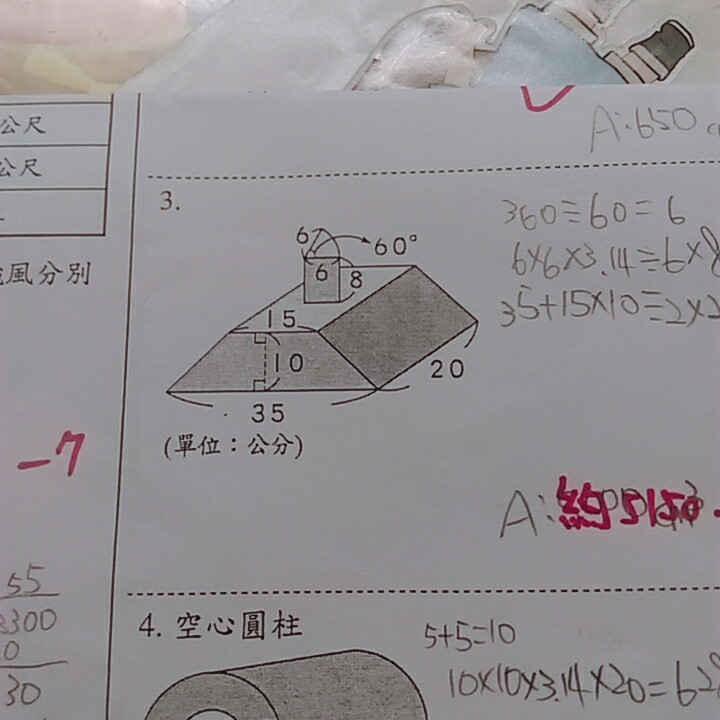 公尺
A:650
公尺
3.
360÷60=6
6 60°
6×6×3.14÷6×8
風分別
6 8
35+15×10÷2×2
15
10
20
35
(單位：公分)
-7
A:約5150.
55
300
0
30
4. 空心圓柱
5+5=10
10×10×3.14×20=628